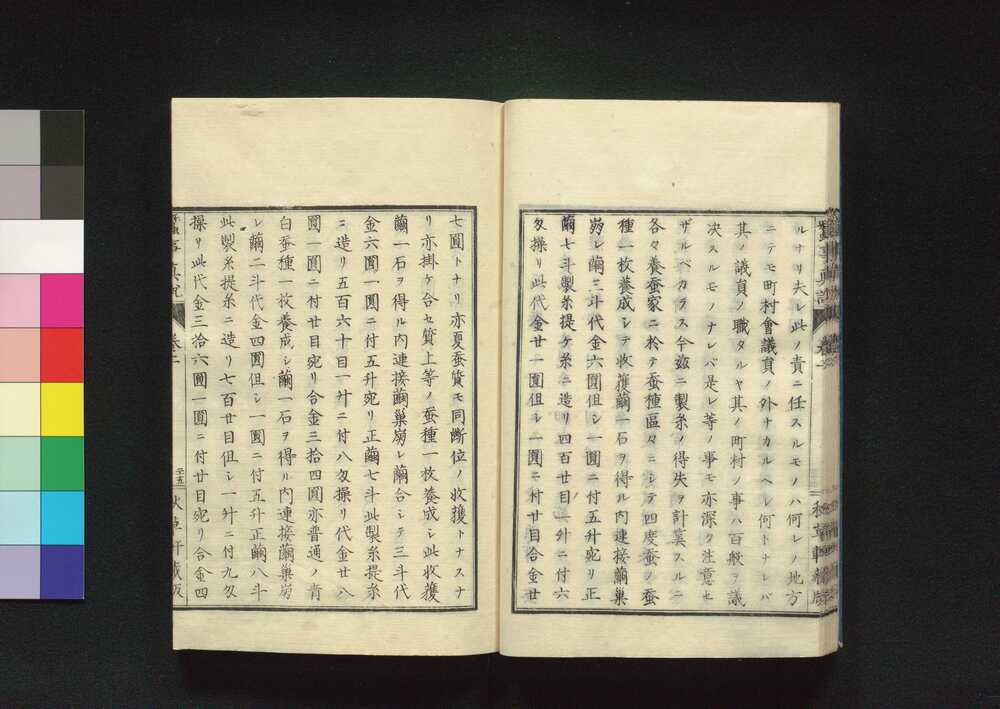 ルナリ夫レ此ノ責ニ任スルモノハ何レノ地方
ニテモ町村會議員ノ外ナカルヘレ何トナレバ
其ノ議員ノ職タルヤ其ノ町村ノ事ハ百般ヲ議
决スルモノナレバ是レ等ノ事モ亦深ク注意セ
ザルベカラス今玆ニ製糸ノ得失ヲ計算スルニ
各々養蚕家ニ於テ蚕種區々ニシテ四度蚕ノ蚕
種一枚養成シテ收獲繭一石ヲ得ル内連接繭巢
崩レ繭三斗代金六圓但シ一圓ニ付五升宛リ正
繭七斗製糸提ケ糸ニ造リ四百廿目一外ニ付六
匁操リ此代金廿一圓但シ一圓ニ付廿目合金廿
七圓トナリ亦夏蚕質モ同斷位ノ收獲トナスナ
リ亦掛ケ合セ質上等ノ蚕種一枚養成シ此收獲
繭一石ヲ得ル内連接繭巢崩レ繭合シテ三斗代
金六圓一圓ニ付五升宛リ正繭七斗此製糸提糸
ニ造リ五百六十目一升ニ付八匁操リ代金廿八
圓一圓ニ付廿目宛リ合金三拾四圓亦普通ノ青
白蚕種一枚養成シ繭一石ヲ得ル内連接繭巢崩
レ繭二斗代金四圓但シ一圓ニ付五升正繭八斗
此製糸提糸ニ造リ七百廿目但シ一升ニ付九匁
操リ此代金三拾六圓一圓ニ付廿目宛リ合金四
卷二
二十五